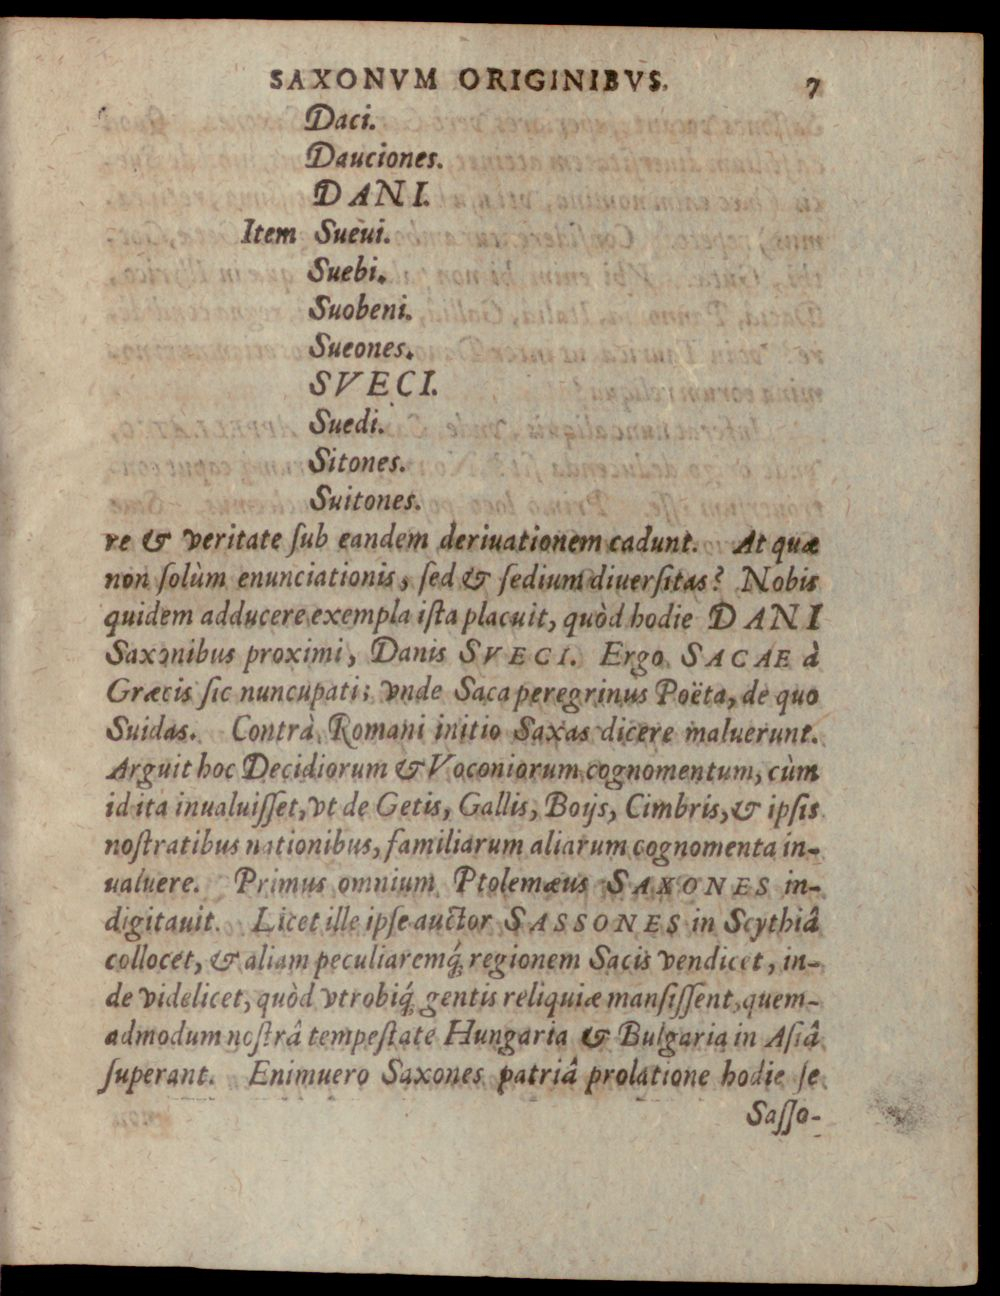 SAXONVM ORIGINIBVS. 7
Daci.
Dauciones.
DANI.
Item Sueui.
Suebi.
Suobeni.
Sueones.
SVECI.
Suedi.
Sitones.
Suitones.
re & veritate ſub eandem deriuationem cadunt. At quæ
non ſolùm enunciationis, ſed & ſedium diuerſitas? Nobis
quidem adducere exempla iſta placuit, quòd hodie DANI
Saxonibus proximi, Danis SVECI. Ergo SACAE à
Græcis ſic nuncupati; vnde Saca peregrinus Poëta, de quo
Suidas. Contrà Romani initio Saxas dicere maluerunt.
Arguit hoc Decidiorum & Voconiorum cognomentum, cùm
id ita inualuiſſet, vt de Getis, Gallis, Boijs, Cimbris, & ipſis
noſtratibus nationibus, familiarum aliarum cognomenta in-
ualuere. Primus omnium Ptolemæus SAXONES in-
digitauit. Licet ille ipſe auctor SASSONES in Scythiâ
collocet, & aliam peculiaremq́; regionem Sacis vendicet, in-
de videlicet, quòd vtrobiq́; gentis reliquiæ manſiſſent, quem-
admodum noſtrâ tempeſtate Hungaria & Bulgaria in Aſiâ
ſuperant. Enimuero Saxones patriâ prolatione hodie ſe
Saſſo-